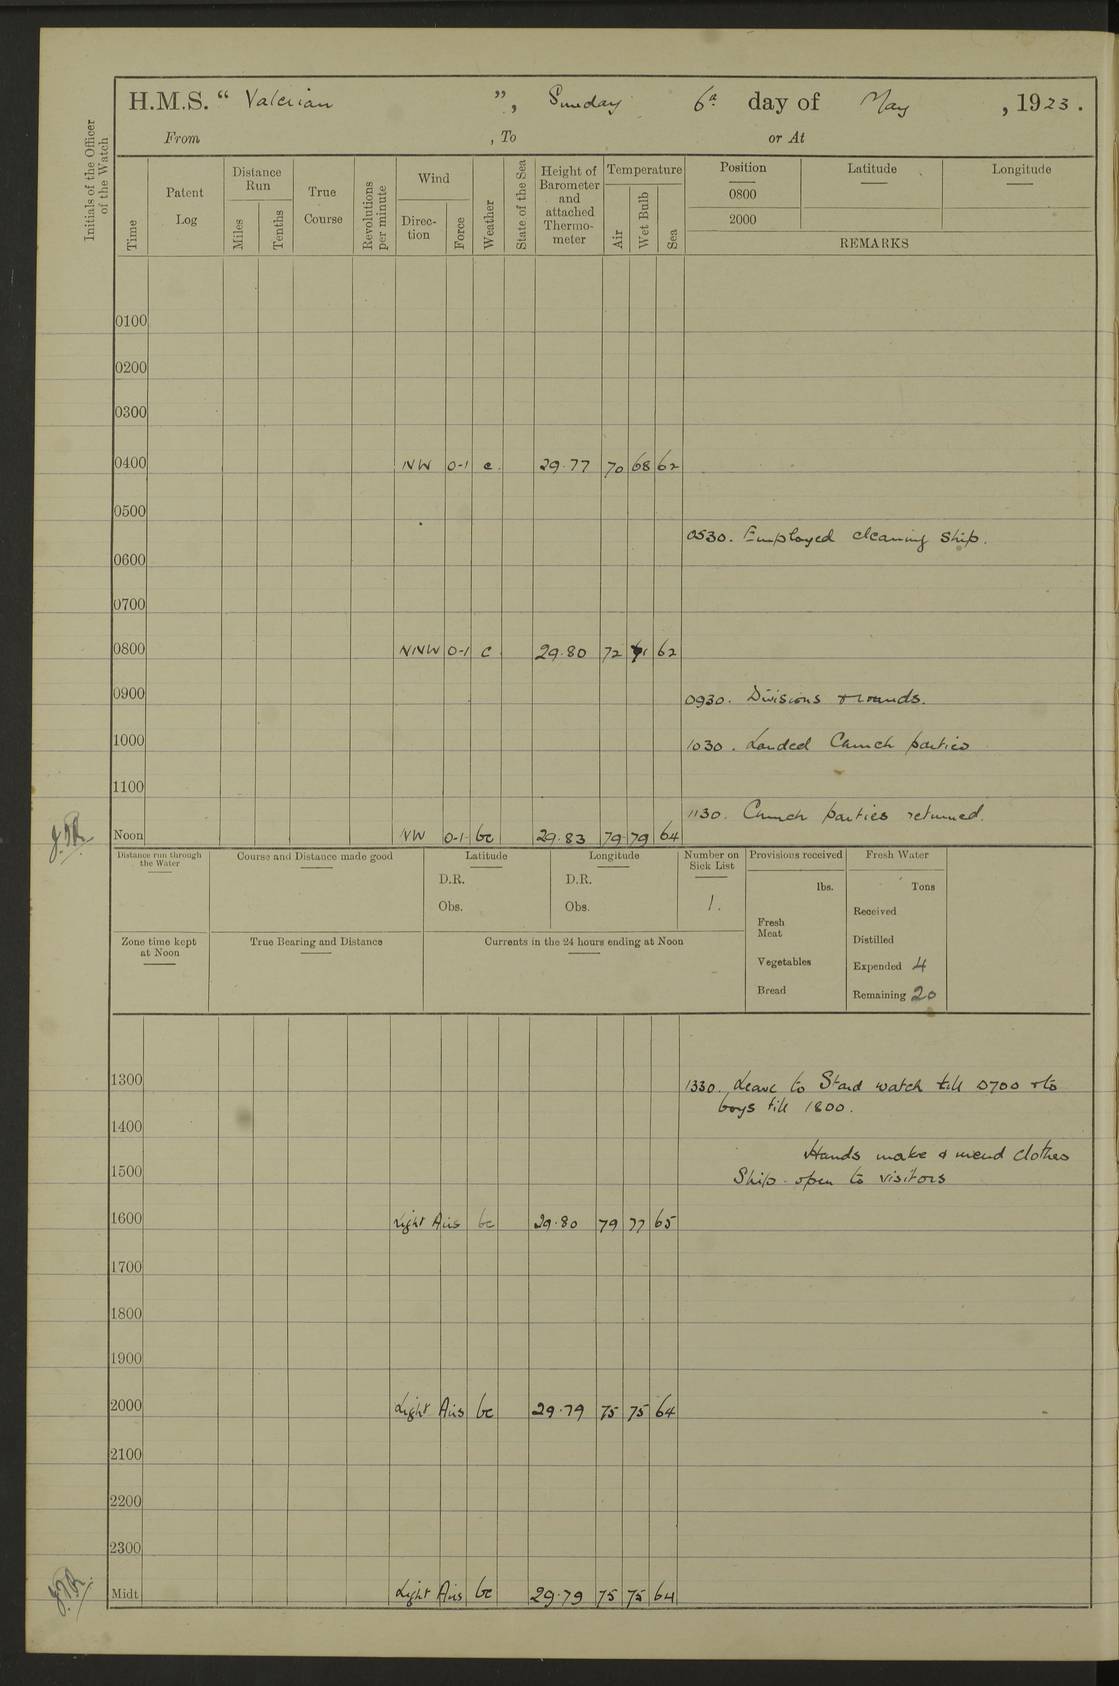 H.M.S. “ Valerian ”, Sunday 6th day of May , 1923.
From , To or At
Initials of the Officer of the Watch
Time
Patent Log
Distance Run
Miles
Tenths
True Course
Revolutions per minute
Wind
Direc-tion
Force
Weather
State of the Sea
Height of Barometer and attached Thermo-meter
Temperature
Air
Wet Bulb
Sea
Position Latitude Longitude
0800
2000
REMARKS
0100
0200
0300
0400 NW 0-1 c 29.77 70 68 62
0500
0530. Employed cleaning ship.
0600
0700
0800 NNW 0-1 c 29.80 72 71 62
0900
0930. Divisions & rounds.
1000
1030. Landed Church parties
1100
1130. Church parties returned.
Noon NW 0-1 bc 29.83 79 79 64
Distance run through the Water
Course and Distance made good
Latitude
D.R.
Obs.
Longitude
D.R.
Obs.
Number on Sick List
1.
Provisions received
lbs.
Fresh Meat
Vegetables
Bread
Fresh Water
Tons
Received
Distilled
Expended 4
Remaining 20
Zone time kept at Noon
True Bearing and Distance
Currents in the 24 hours ending at Noon
1300
1330. Leave to Stard watch till 0700 & to
boys till 1800.
1400
Hands make & mend clothes
1500
Ship open to visitors
1600 Light Airs bc 29.80 79 77 65
1700
1800
1900
2000 Light Airs bc 29.79 75 75 64
2100
2200
2300
Midt Light Airs bc 29.79 75 75 64